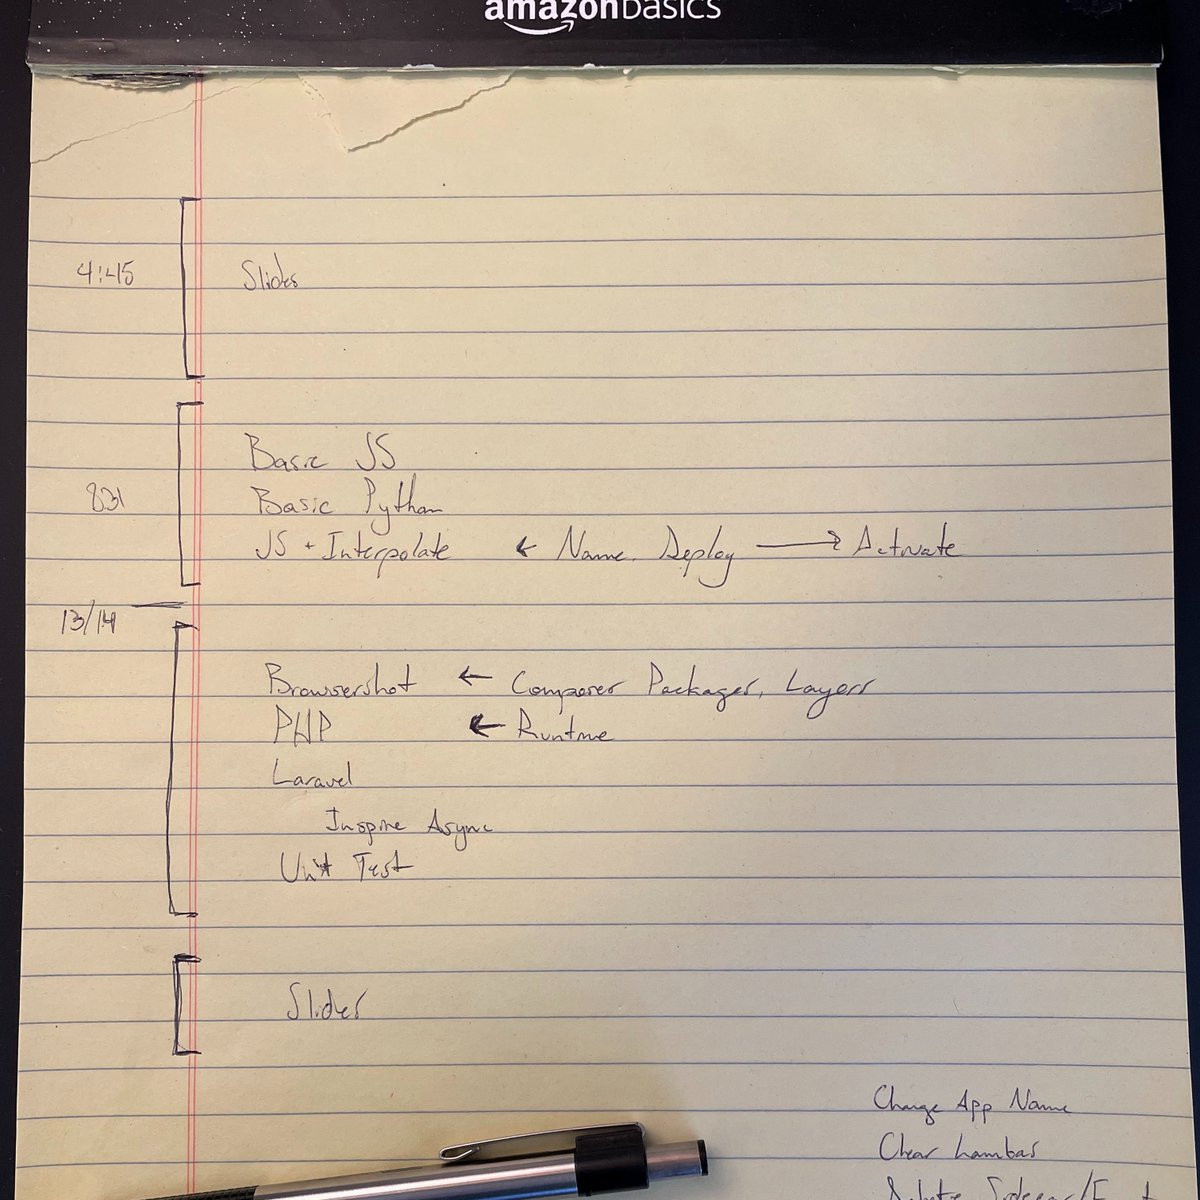 amazonbasics
4:45 Slides
Basic JS
831 Basic Python
JS + Interpolate ← Name, Deploy → Activate
13/14
Browsershot ← Composer Packages, Layers
PHP ← Runtime
Laravel
Inspire Async
Unit Test
Slides
Change App Name
Clear Lambas